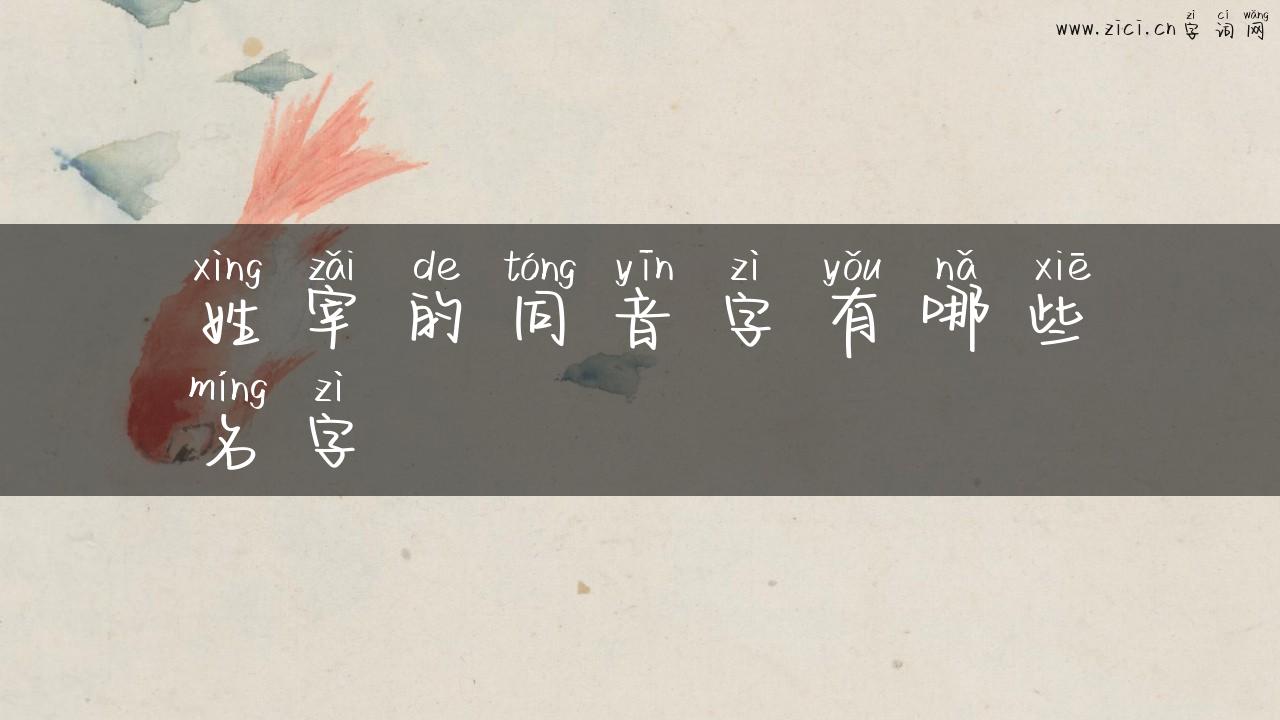 zì cí wǎng
www.zici.cn 字 词 网
xìng zǎi de tóng yīn zì yǒu nǎ xiē
姓 宰 的 同 音 字 有 哪 些
míng zì
名 字